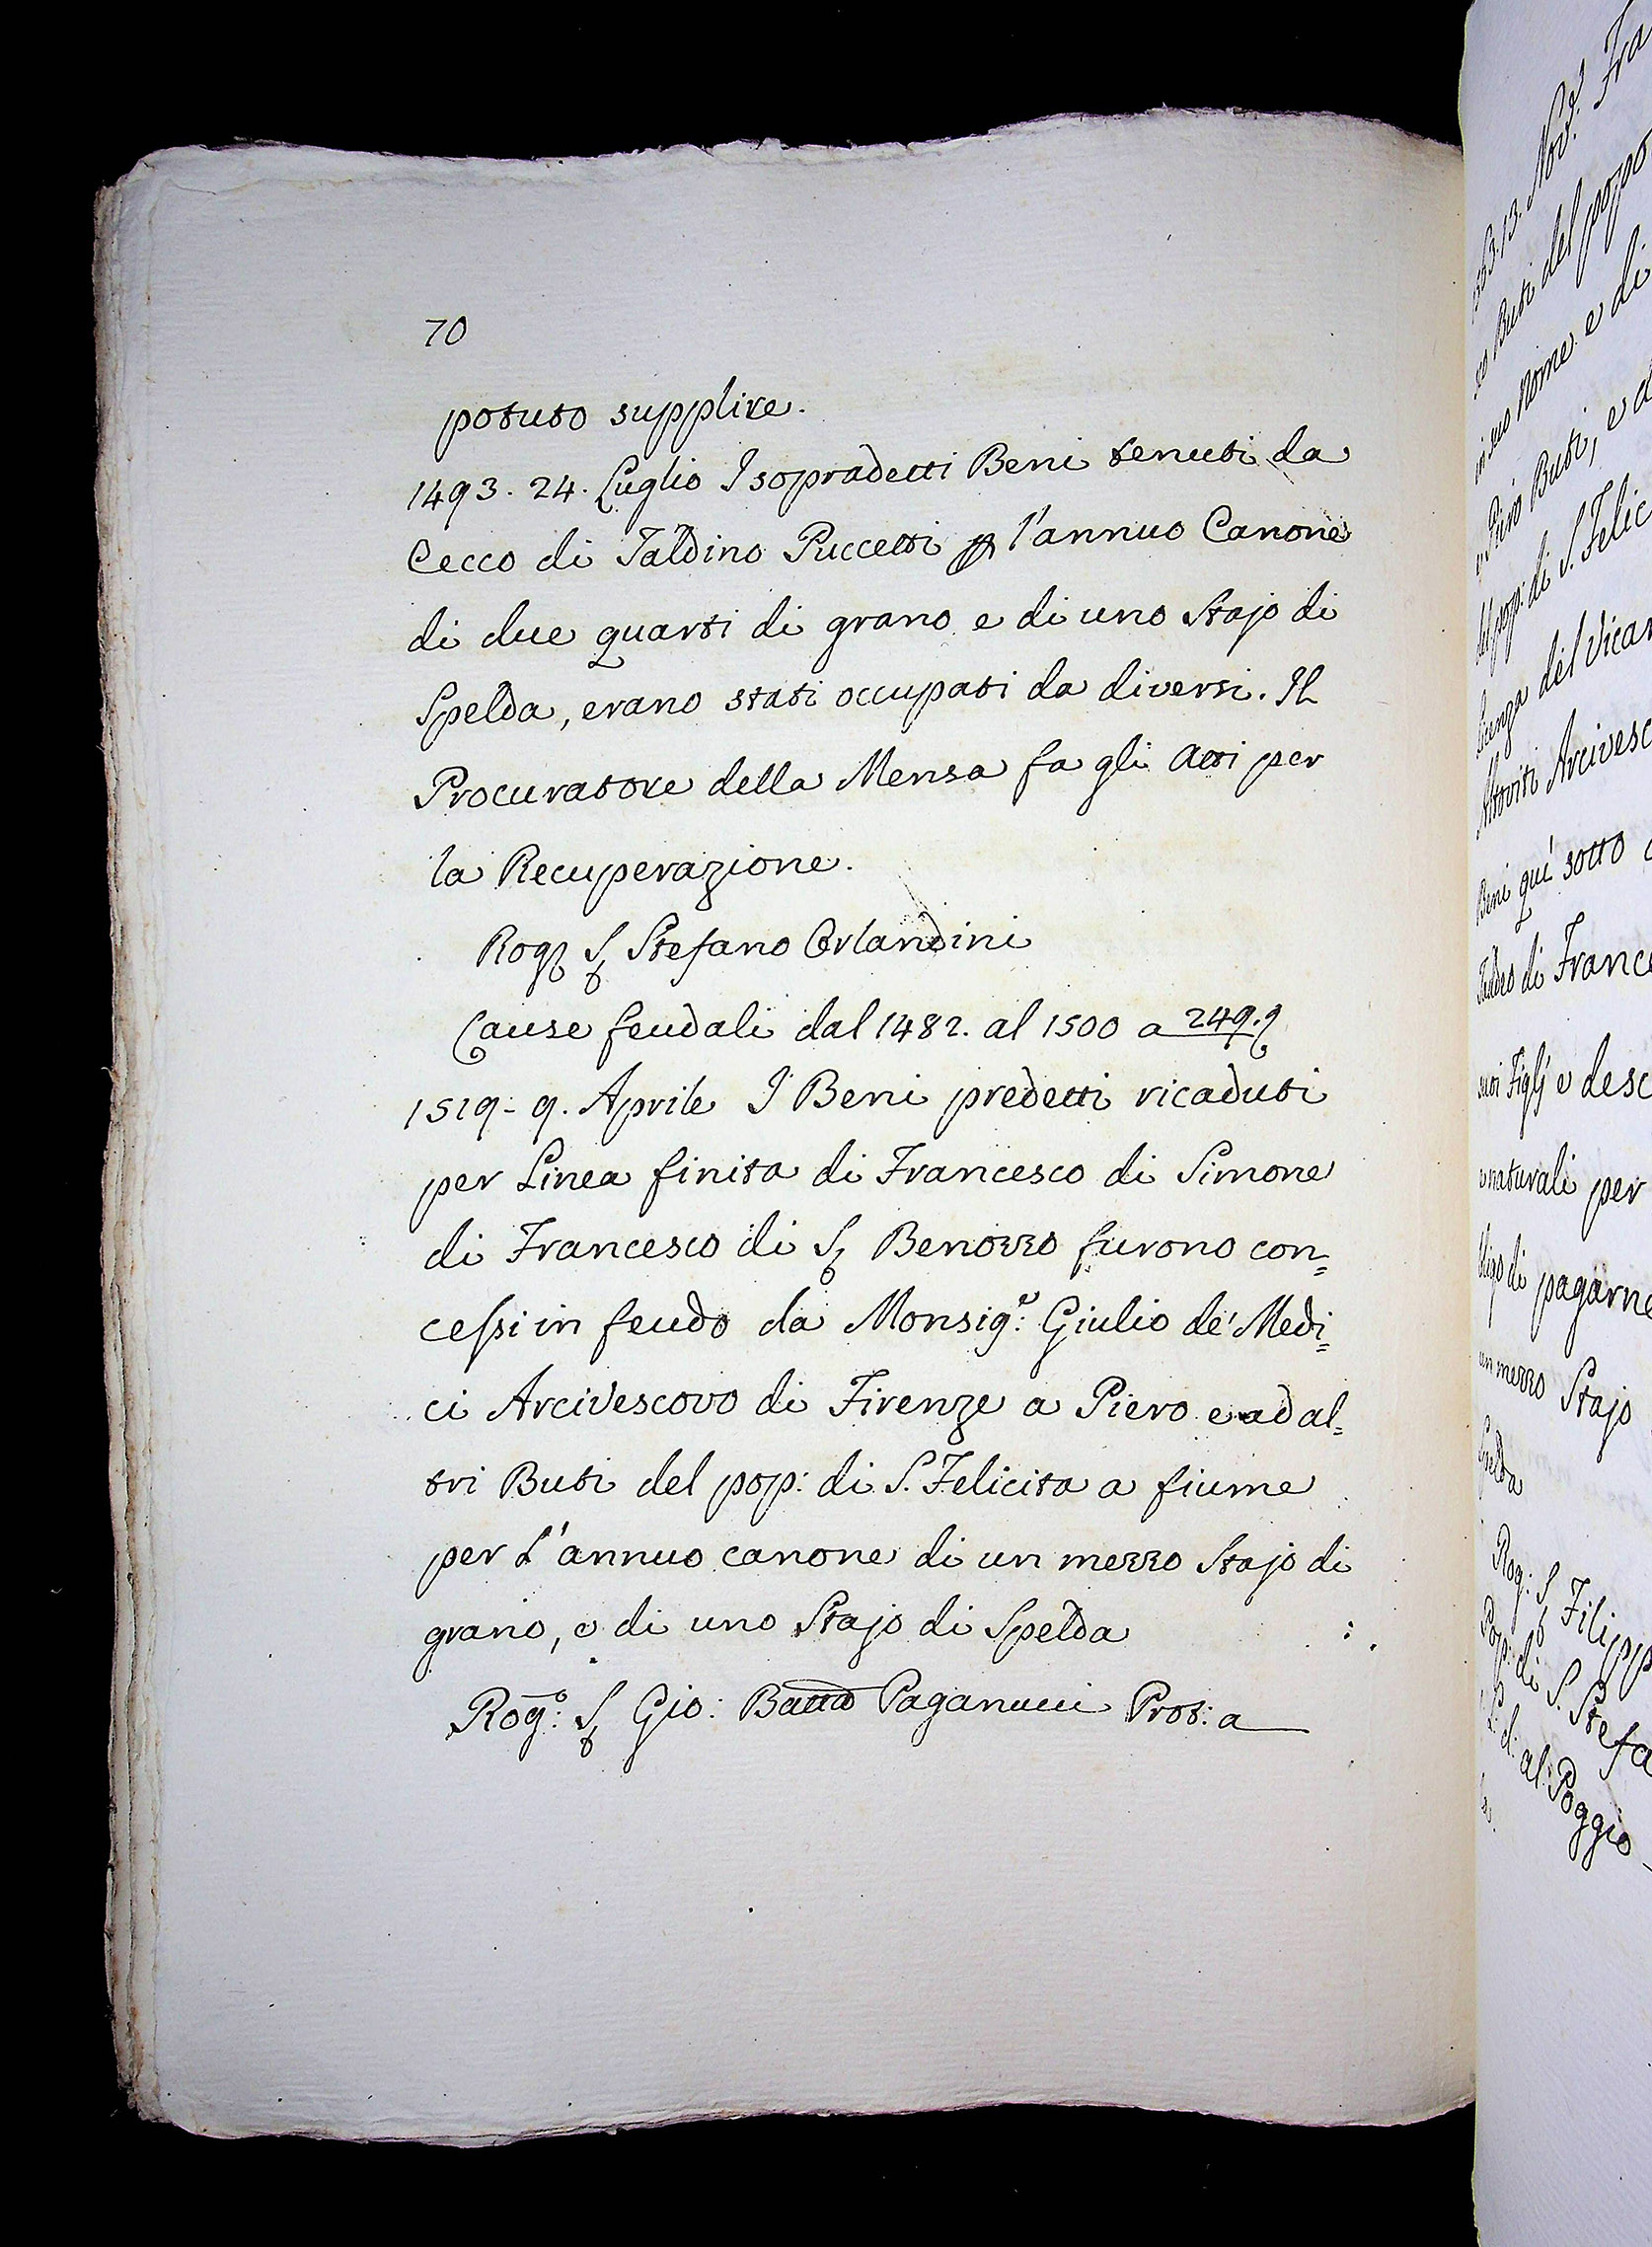 70
potuto supplire.
1493. 24. Luglio I sopradetti Beni tenuti da
Cecco di Taldino Puccetti p l'annuo Canone
di due quarti di grano e di uno Stajo di
Spelda, erano stati occupati da diversi. Il
Procuratore della Mensa fa gli Atti per
la Recuperazione.
Rog S Stefano Orlandini
Cause feudali dal 1482. al 1500 a 249.
1519 - 9. Aprile I Beni predetti ricaduti
per Linea finita di Francesco di Simone
di Francesco di S Benozzo furono con=
cessi in feudo da Monsig.e Giulio de' Medi=
ci Arcivescovo di Firenze a Piero e ad al=
tri Buti del pop: di S. Felicita a fiume
per L'annuo canone di un mezzo Stajo di
grano, e di uno Stajo di Spelda
Rog.o S Gio: Batta Paganucci Prot: a
13. Nov. Fra
Buti del popo
in suo nome e di
Piero Buti, e
del pop: di S. Felic
licenza del Vicar
Altoviti Arcivesc
Beni quì sotto
Taddeo di France
suoi Figlj e desc
naturali per
di pagarne
un mezzo Stajo
Spelda
Rog: S Filipp
Pop: di S. Stefa
al Poggio